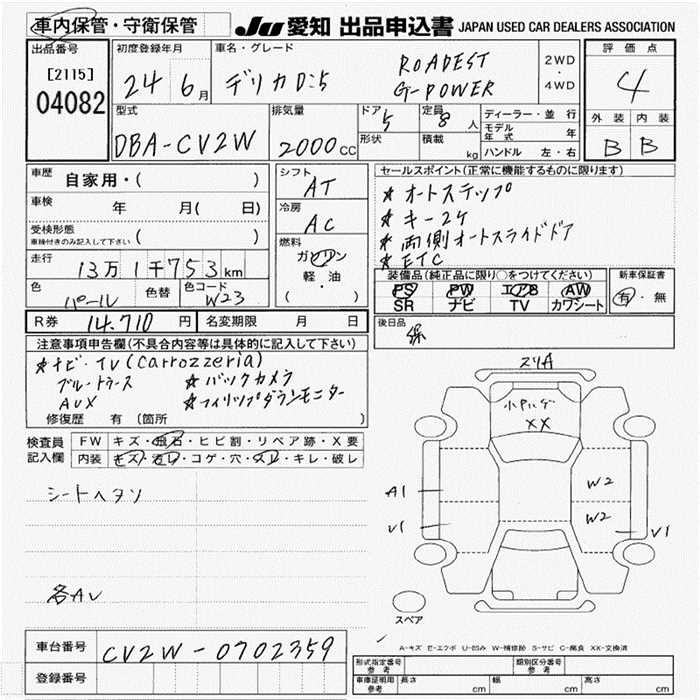 車内保管・守衛保管 JU 愛知 出品申込書 JAPAN USED CAR DEALERS ASSOCIATION
出品番号 初度登録年月 車名・グレード 評価点
[2115] 24 6月 デリカD:5 ROADEST 2WD・4WD 4
04082 G-POWER
型式 排気量 ドア 定員 ディーラー・並行 外装 内装
DBA-CV2W 2000cc 5 8人 モデル年式 年 B B
形状 積載 kg ハンドル 左・右
車歴 自家用・( ) シフト AT セールスポイント(正常に機能するものに限ります)
車検 年 月( 日) 冷房 AC ★オートステップ
受検形態 ( ) ★キー2ケ
車検付きのみ記入して下さい 燃料 ★両側オートスライドドア
走行 13万1千753km ガソリン ★ETC
軽・油
( )
色 パール 色替 色コード W23 装備品(純正品に限り○をつけてください) 新車保証書
PS PW エアB AW 有・無
SR ナビ TV カワシート
R券 14,710円 名変期限 月 日 後日品
注意事項申告欄(不具合内容等は具体的に記入して下さい)
★ナビ・TV(carrozzeria)
ブルートゥース ★バックカメラ
AUX ★フィリップダウンモニター
修復歴 有 (箇所
検査員記入欄 FW キズ・飛石・ヒビ割・リペア跡・X要
内装 キズ・汚レ・コゲ・穴・スレ・キレ・破レ
シートヘタソ
各AU
スリA
XX
A1 W2
V1 W2 V1
スペア
A-キズ E-エクボ U-凹み W-補修跡 S-サビ C-腐食 XX-交換済
車台番号 CV2W-0702359
登録番号
形式指定番号 参考 類別区分番号 参考
車庫証明用 参考 長さ cm 幅 cm 高さ cm